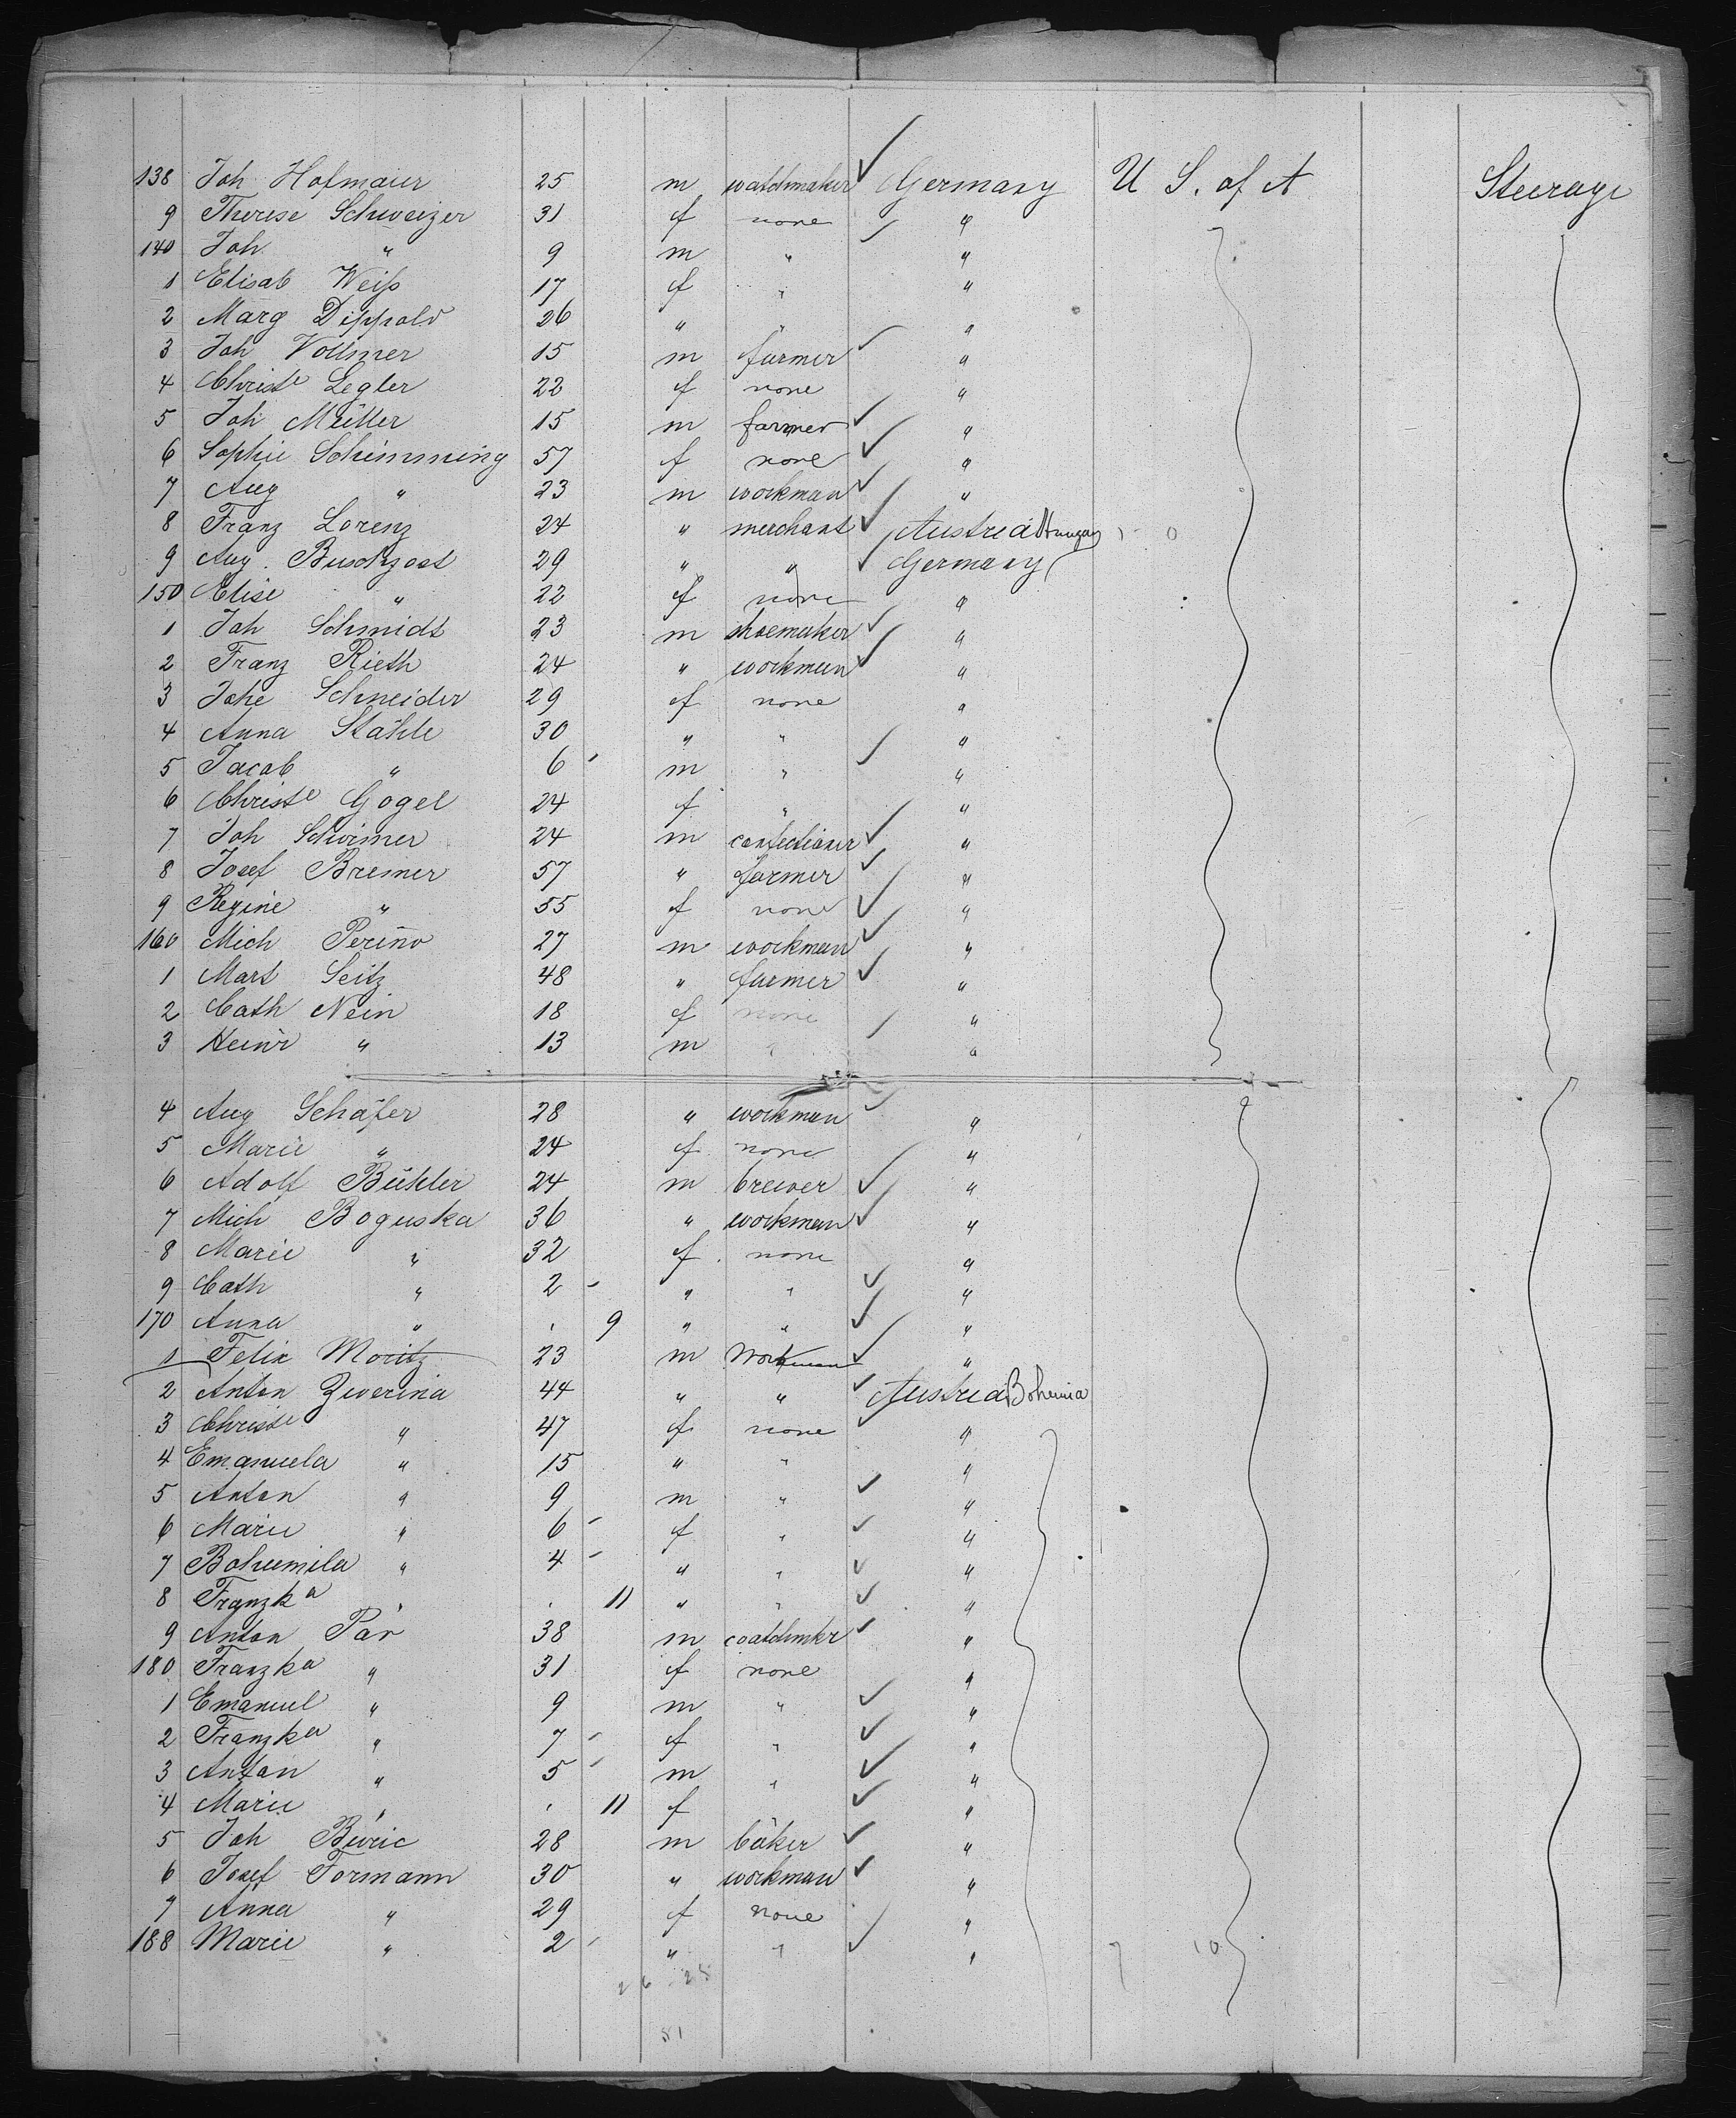 138 Joh Hofmaier 25 m watchmaker Germany U S. of A Steerage
9 Therese Schweizer 31 f none "
140 Joh " 9 m " "
1 Elisab Weiß 17 f " "
2 Marg Dippold 26 " " "
3 Joh Vollmer 15 m farmer "
4 Christe Legler 22 f none "
5 Joh Müller 15 m farmer "
6 Sophie Schimming 57 f none "
7 Aug " 23 m workman "
8 Franz Lorenz 24 " merchant Austria Hungay
9 Aug. 29 " " Germany
150 Elise " 22 f none "
1 Joh Schmidt 23 m shoemaker "
2 Franz Rieth 24 " workman "
3 Johe Schneider 29 f none "
4 Anna Stähle 30 " " "
5 Jacob " 6 m " "
6 Christe Gögel 24 f " "
7 Joh 24 m confectioner "
8 Josef Bremer 57 " farmer "
9 Regine " 55 f none "
160 Mich 27 m workman "
1 Mart Seitz 48 " farmer "
2 Cath Nein 18 f none "
3 Heinr " 13 m " "
4 Aug Schäfer 28 " workman "
5 Marie " 24 f none "
6 Adolf Bühler 24 m brewer "
7 Mich Boguska 36 " workman "
8 Marie " 32 f none "
9 Cath " 2 " " "
170 Anna " . 9 " " "
1 Felix Moritz 23 m Workman "
2 Anton Zwerina 44 " " Austria Bohemia
3 Christe " 47 f none "
4 Emanuela " 15 " " "
5 Anton " 9 m " "
6 Marie " 6 f " "
7 Bohumila " 4 " " "
8 Franzka " . 11 " " "
9 Anton Pär 38 m watchmkr "
180 Franzka " 31 f none "
1 Emanuel " 9 m " "
2 Franzka " 7 f " "
3 Anton " 5 m " "
4 Marie " . 11 f "
5 Joh 28 m bäker "
6 Josef Formann 30 " workman "
7 Anna " 29 f none "
188 Marie " 2 " " "
26 25
51